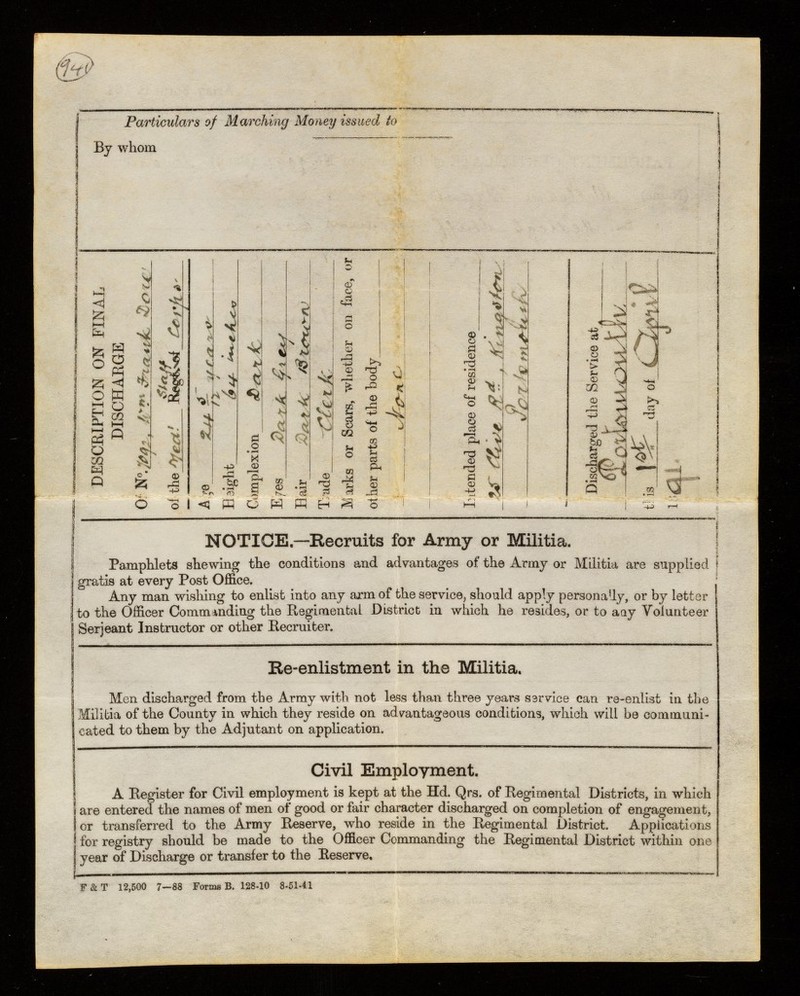 940
Particulars of Marching Money issued to
By whom
DESCRIPTION ON FINAL
DISCHARGE
Of No. Wm Frank Dove
of the Med! Staff Corps
Age 24 5/12 years
Height 64 inches
Complexion Dark
Eyes Dark Grey
Hair Dark Brown
Trade Clerk
Marks or Scars, whether on face, or
other parts of the body
None
Intended place of residence
25 Clive Rd., Kingston
Portsmouth
Discharged the Service at
Portsmouth
this 1st day of April
1891.
NOTICE.—Recruits for Army or Militia.
Pamphlets shewing the conditions and advantages of the Army or Militia are supplied
gratis at every Post Office.
Any man wishing to enlist into any arm of the service, should apply personally, or by letter
to the Officer Commanding the Regimental District in which he resides, or to any Volunteer
Serjeant Instructor or other Recruiter.
Re-enlistment in the Militia.
Men discharged from the Army with not less than three years service can re-enlist in the
Militia of the County in which they reside on advantageous conditions, which will be communi-
cated to them by the Adjutant on application.
Civil Employment.
A Register for Civil employment is kept at the Hd. Qrs. of Regimental Districts, in which
are entered the names of men of good or fair character discharged on completion of engagement,
or transferred to the Army Reserve, who reside in the Regimental District. Applications
for registry should be made to the Officer Commanding the Regimental District within one
year of Discharge or transfer to the Reserve.
F & T 12,500 7—88 Forms B. 128-10 8-51-41